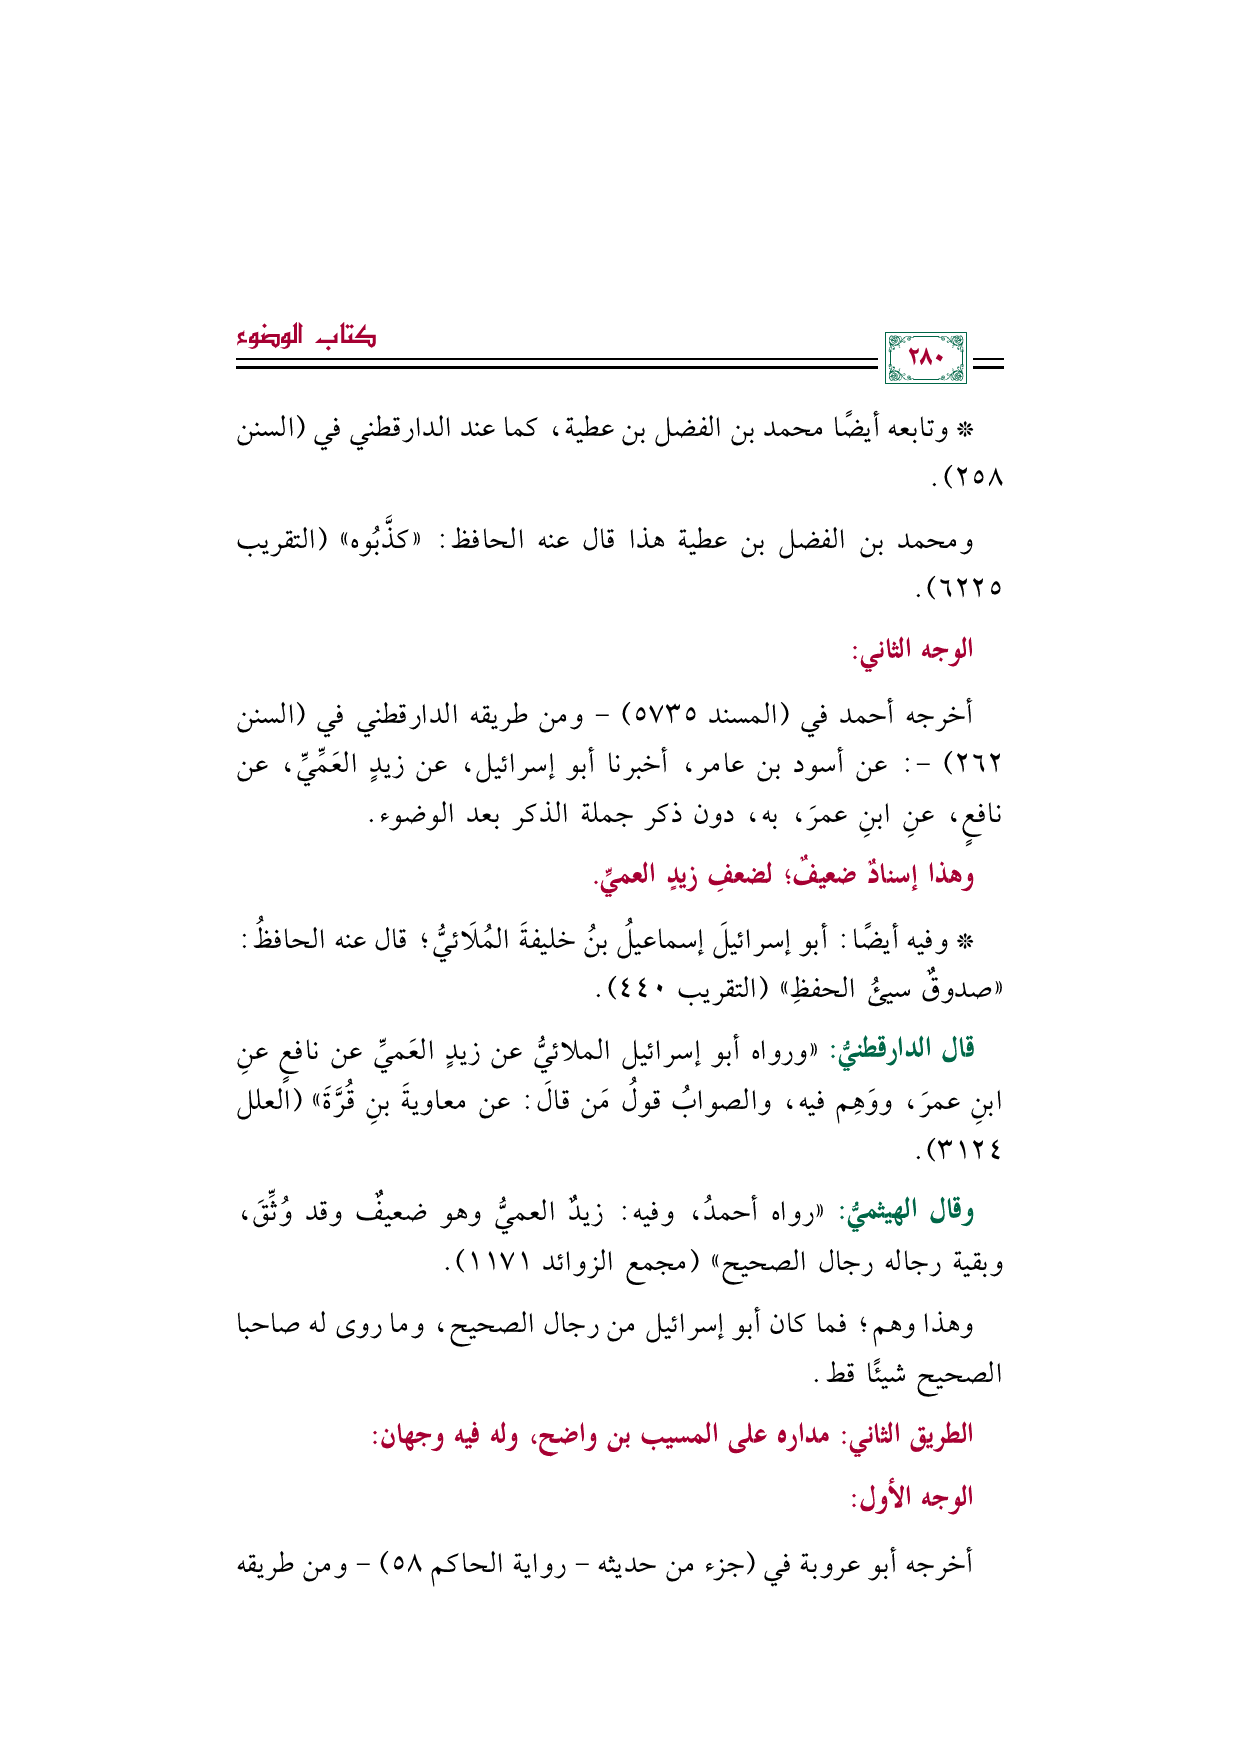 كتاب الوضوء
٢٨٠
* وتابعه أيضًا محمد بن الفضل بن عطية، كما عند الدارقطني في (السنن
٢٥٨).
ومحمد بن الفضل بن عطية هذا قال عنه الحافظ: «كذَّبُوه» (التقريب
٦٢٢٥).
الوجه الثاني:
أخرجه أحمد في (المسند ٥٧٣٥) - ومن طريقه الدارقطني في (السنن
٢٦٢) -: عن أسود بن عامر، أخبرنا أبو إسرائيل، عن زيدٍ العَمِّيِّ، عن
نافعٍ، عنِ ابنِ عمرَ، به، دون ذكر جملة الذكر بعد الوضوء.
وهذا إسنادٌ ضعيفٌ؛ لضعفِ زيدٍ العميِّ.
* وفيه أيضًا: أبو إسرائيلَ إسماعيلُ بنُ خليفةَ المُلَائيُّ؛ قال عنه الحافظُ:
«صدوقٌ سيئُ الحفظِ» (التقريب ٤٤٠).
قال الدارقطنيُّ: «ورواه أبو إسرائيل الملائيُّ عن زيدٍ العَميِّ عن نافعٍ عنِ
ابنِ عمرَ، ووَهِم فيه، والصوابُ قولُ مَن قالَ: عن معاويةَ بنِ قُرَّةَ» (العلل
٣١٢٤).
وقال الهيثميُّ: «رواه أحمدُ، وفيه: زيدٌ العميُّ وهو ضعيفٌ وقد وُثِّقَ،
وبقية رجاله رجال الصحيح» (مجمع الزوائد ١١٧١).
وهذا وهم؛ فما كان أبو إسرائيل من رجال الصحيح، وما روى له صاحبا
الصحيح شيئًا قط.
الطريق الثاني: مداره على المسيب بن واضح، وله فيه وجهان:
الوجه الأول:
أخرجه أبو عروبة في (جزء من حديثه - رواية الحاكم ٥٨) - ومن طريقه